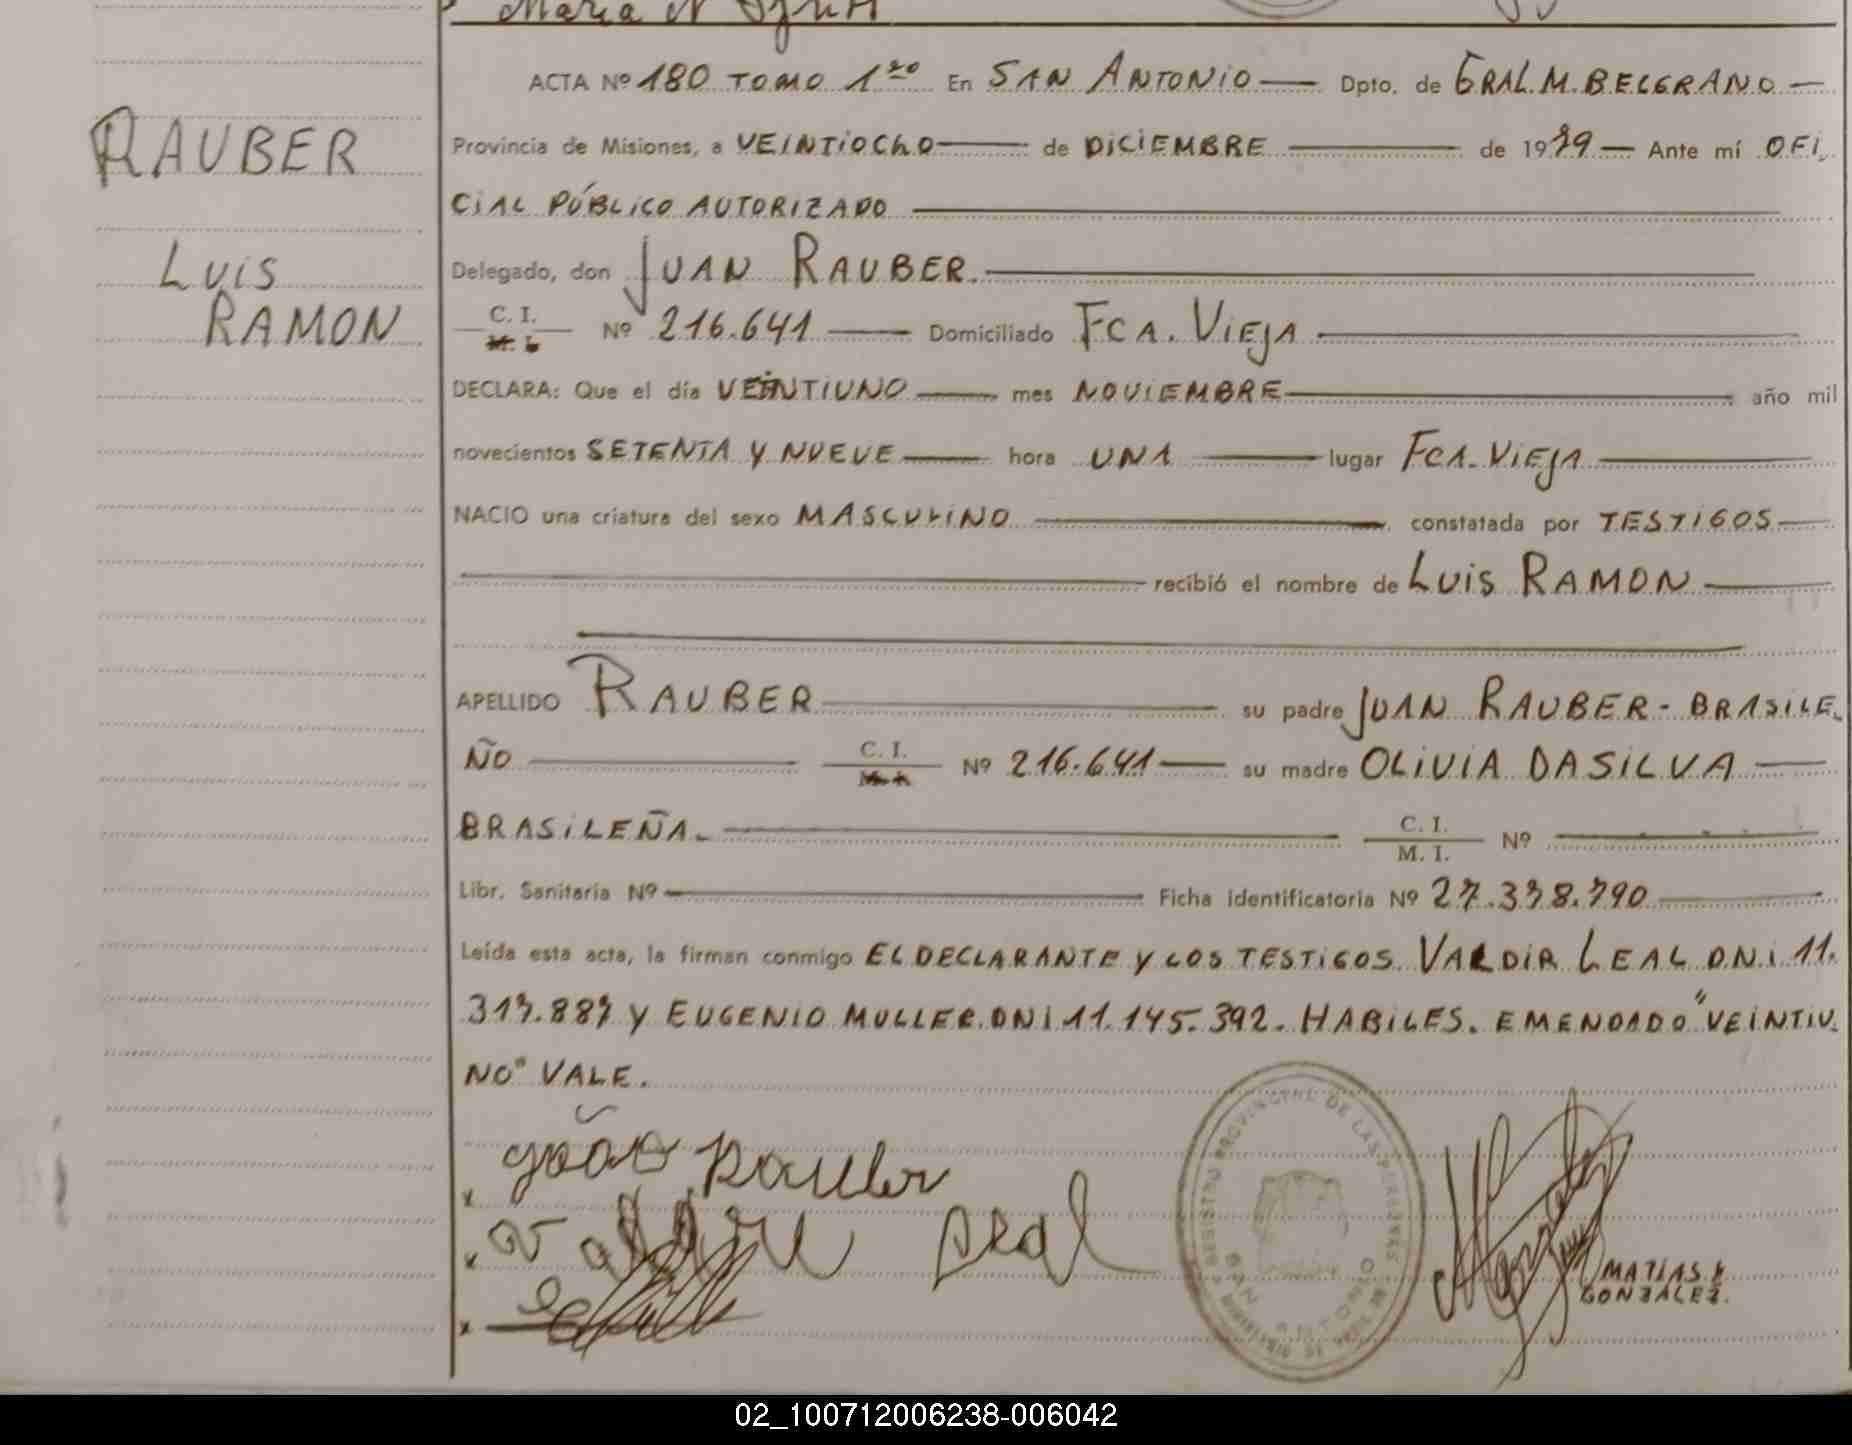 Maria N
RAUBER
LUIS
RAMON
ACTA Nº 180 TOMO 1ro En SAN ANTONIO Dpto. de GRAL. M. BELGRANO
Provincia de Misiones, a VEINTIOCHO de DICIEMBRE de 1979 Ante mí OFI
CIAL PÚBLICO AUTORIZADO
Delegado, don JUAN RAUBER.
C. I. Nº 216.641 Domiciliado FCA. VIEJA
DECLARA: Que el día VEINTIUNO mes NOVIEMBRE año mil
novecientos SETENTA Y NUEVE hora UNA lugar FCA. VIEJA
NACIO una criatura del sexo MASCULINO constatada por TESTIGOS
recibió el nombre de LUIS RAMON
APELLIDO RAUBER su padre JUAN RAUBER - BRASILE
ÑO C. I. Nº 216.641 su madre OLIVIA DASILVA
BRASILEÑA. C. I. / M. I. Nº
Libr. Sanitaria Nº Ficha identificatoria Nº 27.378.790
Leída esta acta, la firman conmigo EL DECLARANTE Y LOS TESTIGOS VALDIR LEAL DNI 11.
317.887 Y EUGENIO MULLER DNI 11.145.392. HABILES. EMENDADO "VEINTIU
NO" VALE.
João Rauber
Leal
REGISTRO PROVINCIAL DE LAS PERSONAS
SAN ANTONIO
MATIAS
GONZALEZ.
02_100712006238-006042